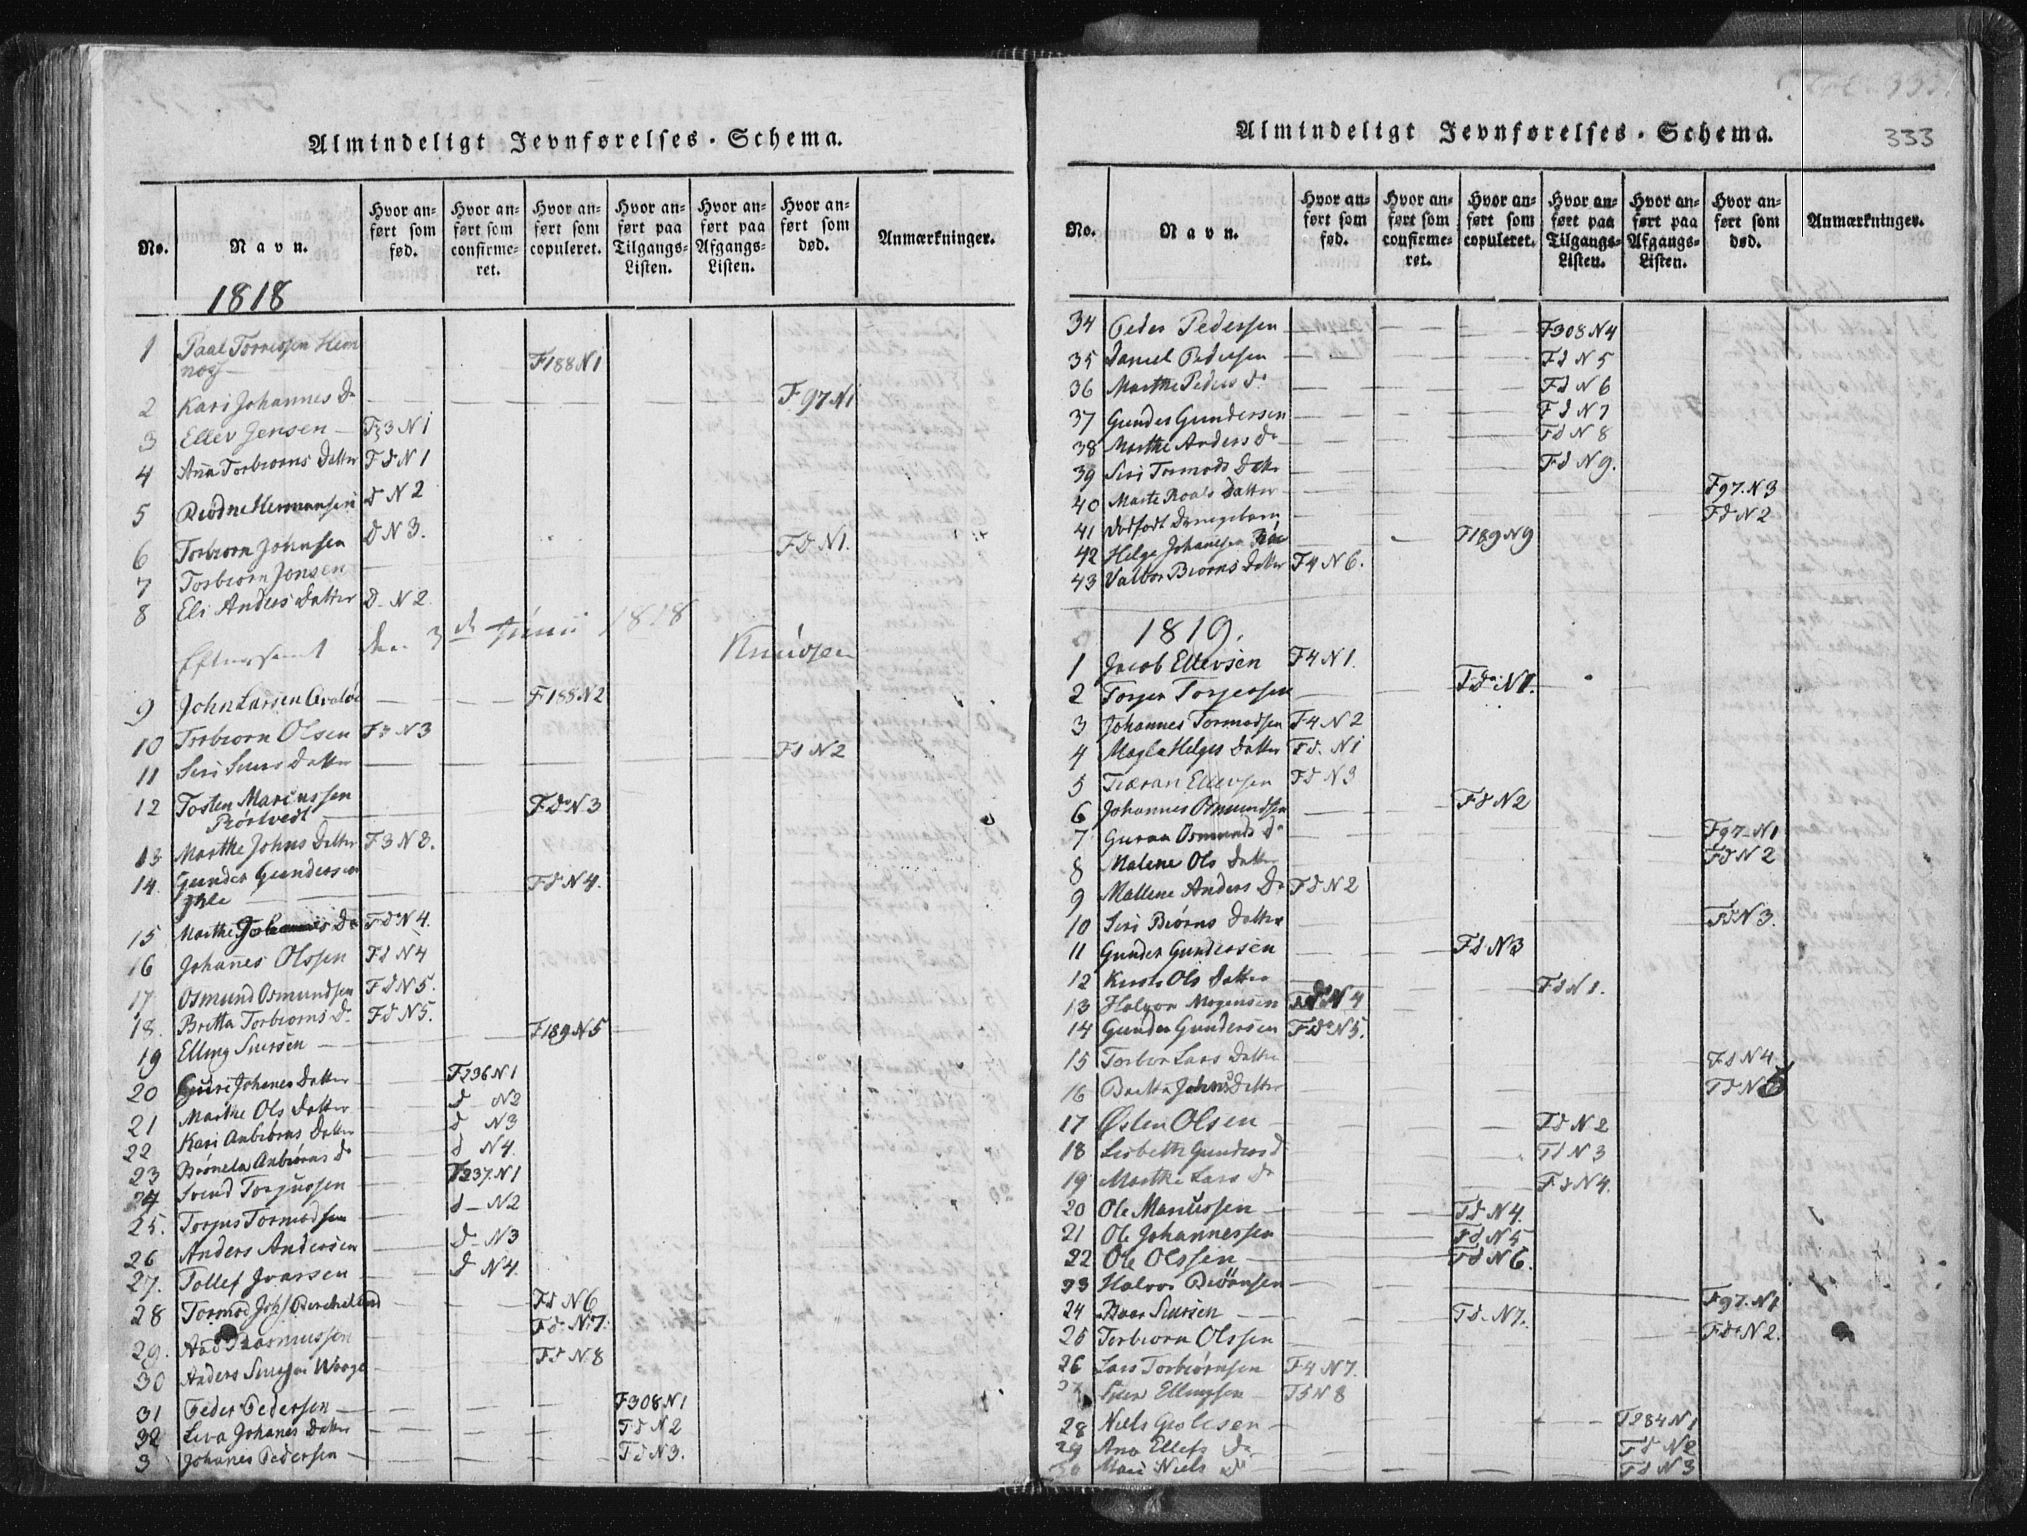 Almindeligt Jevnførelses-Schema.
No. Navn. Hvor anført som fød. Hvor anført som confirmeret. Hvor anført som copuleret. Hvor anført paa Tilgangs-Listen. Hvor anført paa Afgangs-Listen. Hvor anført som død. Anmærkninger.
1818
1 Paal Torressen Hem
nog F188 N1
2 Kari Johannes Dr F 97 N1
3 Ellev Jensen F3 N1
4 Ana Torbiorns Datter Fd N1
5 Hermansen d N2
6 Torbiorn Johnsen d N3. Fd N1.
7 Torbiorn Jonsen
8 Eli Anders Datter d N2
den 3die Junii 1818
Knudsen
9 John Larsen F188 N2
10 Torbiorn Olsen F3 N3
11 Siri Siurs Datter Fd N2
12 Tosten Marcussen
Rørtvedt Fd N3
13 Marthe Johns Datter F3 N3.
14. Gunder Gundersen Fd N4.
15 Marthe Johannes Dr Fd N4.
16 Johanes Olssen Fd N4
17 Osmund Osmundsen Fd N5.
18. Britta Torbiorns Dr Fd N5.
19 Elling Siursen F189 N5
20 Guri Johanes Datter F236 N1
21 Marthe Ols Datter d N2
22 Kari Anbiorns Datter d N3
23 Anbiorns Dr d N4.
24 Svend Torjussen F237. N1
25. Torjus Tormodsen d N2
26 Anders Andersen d N3
27. Tollef Ivarsen d N4
28 Tormod Fd N6
29. Rasmussen Fd N7.
30 Anders Siursen Waage Fd N8
31 Peder Pedersen F308 N1
32 Liva Johanes Datter Fd N2
3 Johanes Pedersen Fd N3.
333
Almindeligt Jevnførelses-Schema.
No. Navn. Hvor anført som fød. Hvor anført som confirmeret. Hvor anført som copuleret. Hvor anført paa Tilgangs-Listen. Hvor anført paa Afgangs-Listen. Hvor anført som død. Anmærkninger.
34 Peder Pedersen F308 N4
35 Daniel Pedersen Fd N5
36 Marthe Peders Dr Fd N6
37 Gunder Gundersen Fd N7
38 Marthe Anders Dr Fd N8
39 Siri Tormods Datter Fd N9.
40 Marte Roals Datter F97. N3
41 Dødfødt Drengebarn Fd N2
42 Helge Johanssen F189 N9
43 Valbor Biorns Datter F4 N6.
1819.
1 Jacob Ellevsen F4 N1.
2 Torjer Torjersen Fd N1.
3 Johannes Tormodsen F4 N2
4 Magla Helges Datter Fd. N1
5 Tiøran Ellevsen Fd N3
6 Johannes Osmundsen Fd N2
7 Guroa Osmunds Dr F97 N1
8 Malene Ols Datter Fd N2
9 Mallene Anders Dr Fd N2
10 Siri Biørns Datter Fd N3.
11 Gunder Gundersen Fd N3
12 Kirsti Ols Datter Fd N1.
13 Halvor Mogensen Fd N4
14 Gunder Gundersen Fd N5.
15 Torbor Lars Datter Fd N4
16 Johns Datter Fd N5
17 Østen Olsen Fd N2
18 Lisbeth Gunders d Fd N3
19 Marthe Lars Dr Fd N4.
20 Ole Marcussen Fd N4.
21 Ole Johannessen Fd N5
22 Ole Olssen Fd N6.
23 Halvor Biørnsen F97. N1
24 Iver Siursen Fd N7.
25 Torbiorn Olssen Fd N2.
26 Lars Torbiørnsen F4 N7.
Ellingsen Fd N8
28 Niels F284 N1
29 Ana Ellefs Dr Fd N2
30 Mari Niels Dr Fd N3